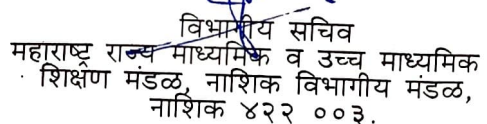 विभागीय सचिव
महाराष्ट्र राज्य माध्यमिक व उच्च माध्यमिक
शिक्षण मंडळ, नाशिक विभागीय मंडळ,
नाशिक ४२२ ००३.